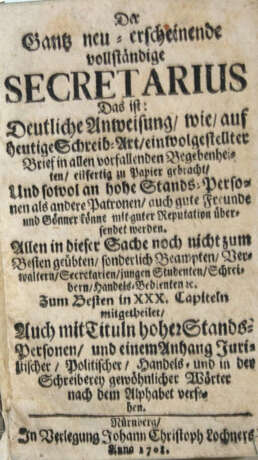 Der
Gantz neu-erscheinende
vollständige
SECRETARIUS
Das ist:
Deutliche Anweisung / wie / auf
heutige Schreib-Art / ein wolgestellter
Brief in allen vorfallenden Begebenhei-
ten / eilfertig zu Papier gebracht /
Und sowol an hohe Stands-Perso-
nen als andere Patronen / auch gute Freunde
und Gönner könne mit guter Reputation über-
sendet werden.
Allen in dieser Sache noch nicht zum
Besten geübten / sonderlich Beampten / Ver-
waltern / Secretarien / jungen Studenten / Schrei-
bern / Handels-Bedienten ꝛc.
Zum Besten in XXX. Capiteln
mitgetheilet /
Auch mit Tituln hoher Stands-
Personen / und einem Anhang Juri-
stischer / Politischer / Handels- und in der
Schreiberey gewöhnlicher Wörter
nach dem Alphabet verse-
hen.
Nürnberg /
In Verlegung Johann Christoph Lochners
Anno 1701.